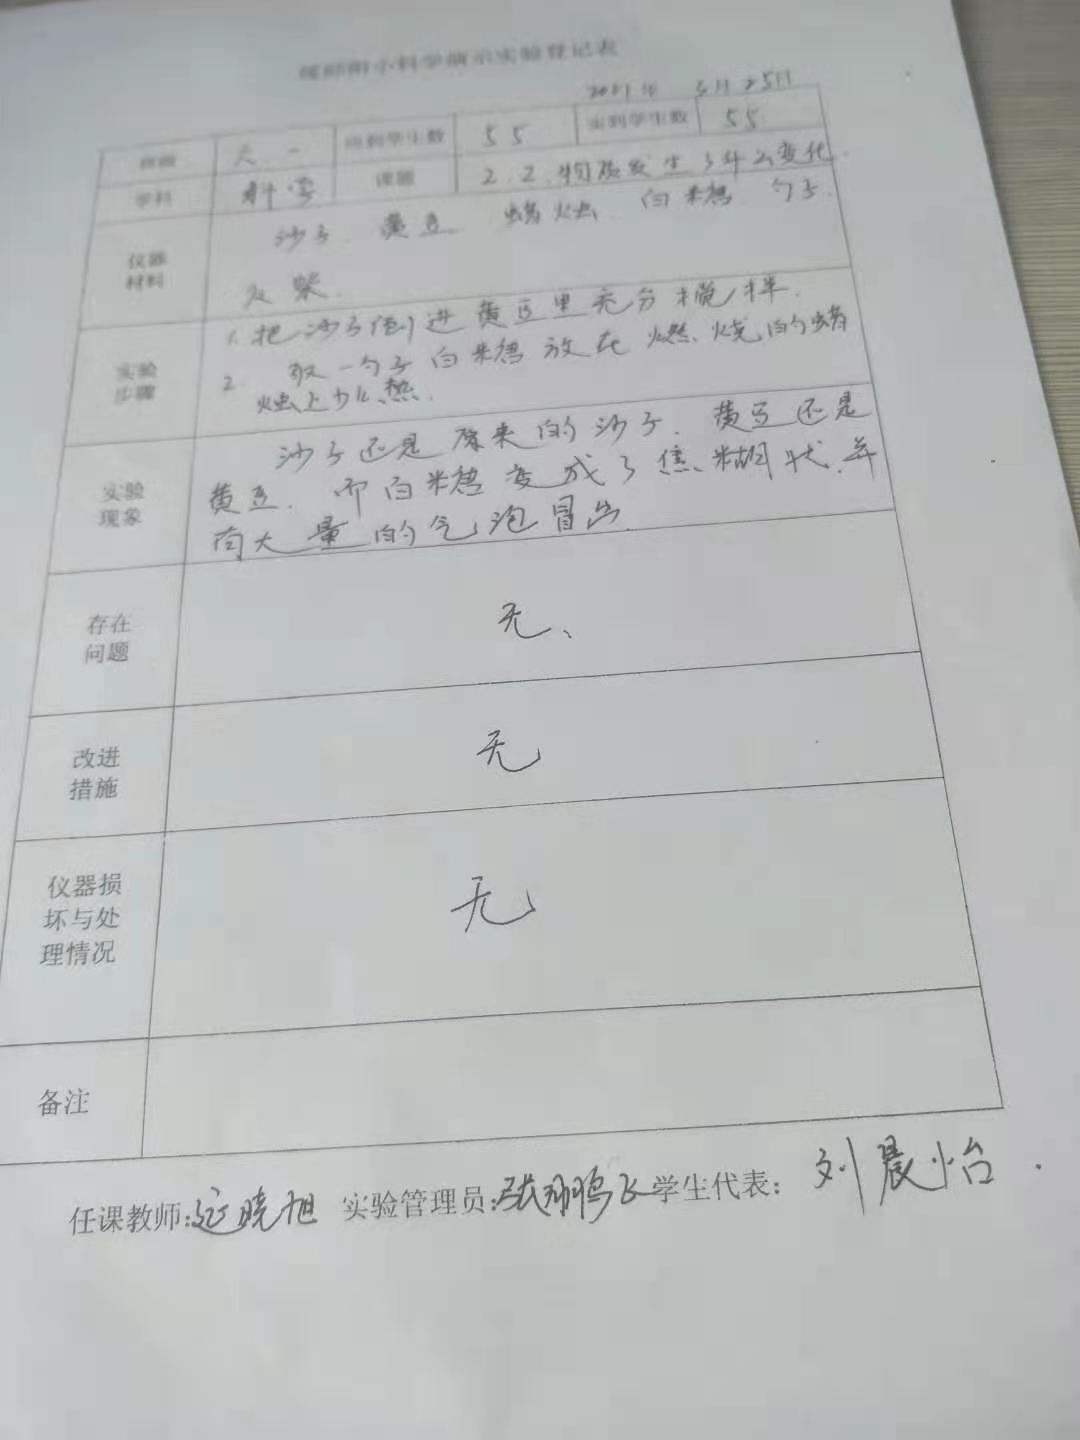 附小科学演示实验登记表
3月25日
班级 六.一 应到学生数 55 实到学生数 55
学科 科学 课题 2.2.物质发生了什么变化.
仪器材料 沙子.黄豆 蜡烛 白糖.勺子.
火柴.
实验步骤 1.把沙子倒进黄豆里充分搅拌.
2. 取一勺子白糖放在燃烧的蜡
烛上加热.
实验现象 沙子还是原来的沙子.黄豆还是
黄豆.而白糖变成了焦糊状.并
有大量的气泡冒出.
存在问题 无、
改进措施 无
仪器损坏与处理情况 无
备注
任课教师: 晓旭 实验管理员:张翔鹏飞 学生代表: 刘晨怡.